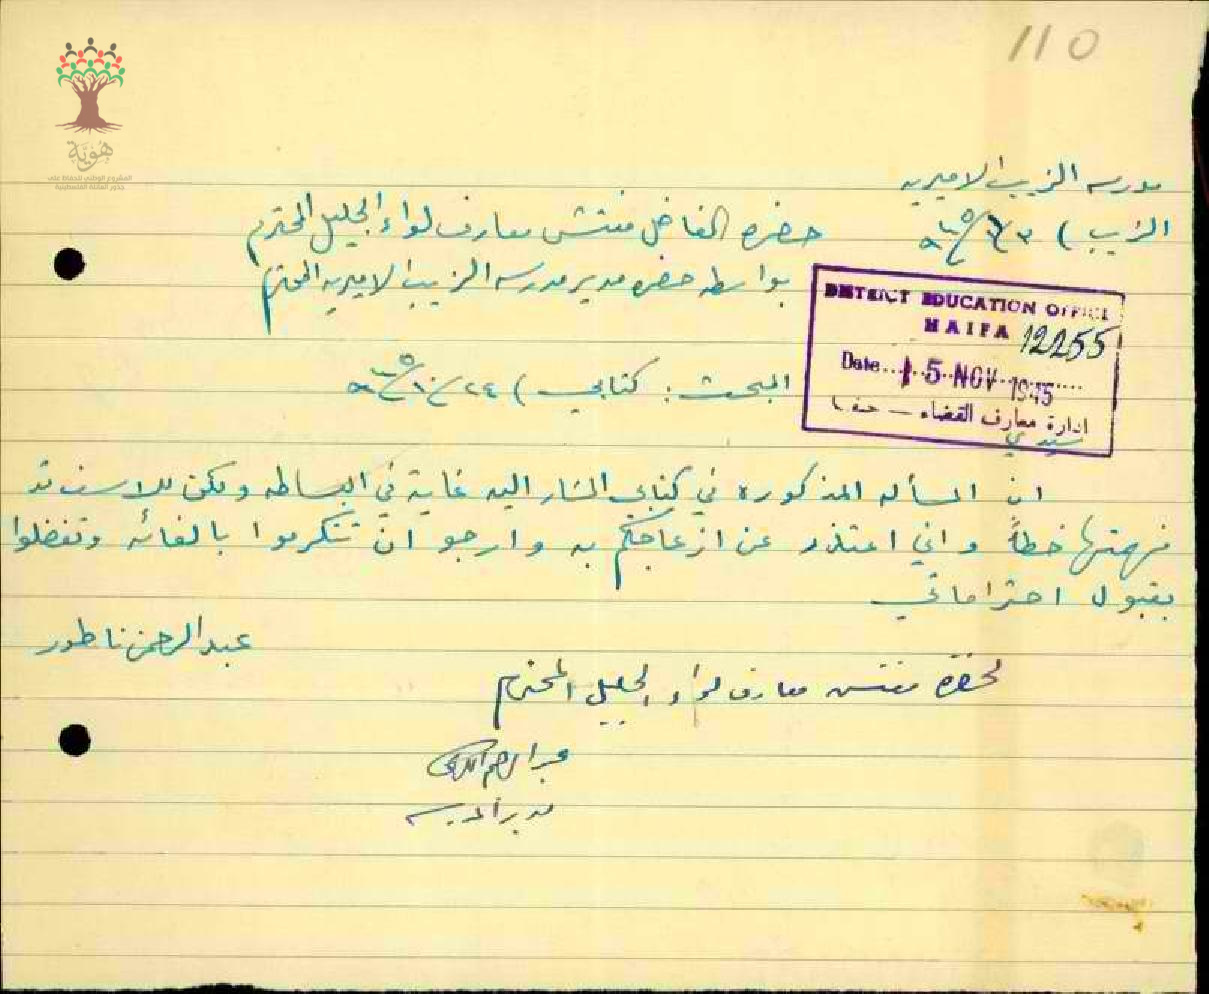 110
هوية
المشروع الوطني للحفاظ على
جذور العائلة الفلسطينية
مدرسه الزيب الاميريه
الزيب )
حضرة الفاضل مفتش معارف لواء الجليل المحترم
بواسطه حضره مدير مدرسه الزيب الاميريه المحترم
DISTRICT EDUCATION OFFICE
HAIFA 12255
Date 15 NOV 1945
ادارة معارف القضاء — حيفا
المبحث : كتابي ) ٢٤/١٠/
سيدي
ان المسأله المذكوره في كتابي المشار اليه غاية في البساطه ولكن للاسف قد
فهمتها خطأً واني اعتذر عن ازعاجكم به وارجو ان تتكرموا بالغائه وتفضلوا
بقبول احتراماتي
عبد الرحمن ناطور
لحضرة مفتش معارف لواء الجليل المحترم
عبد الرحيم
مدير المدرسه